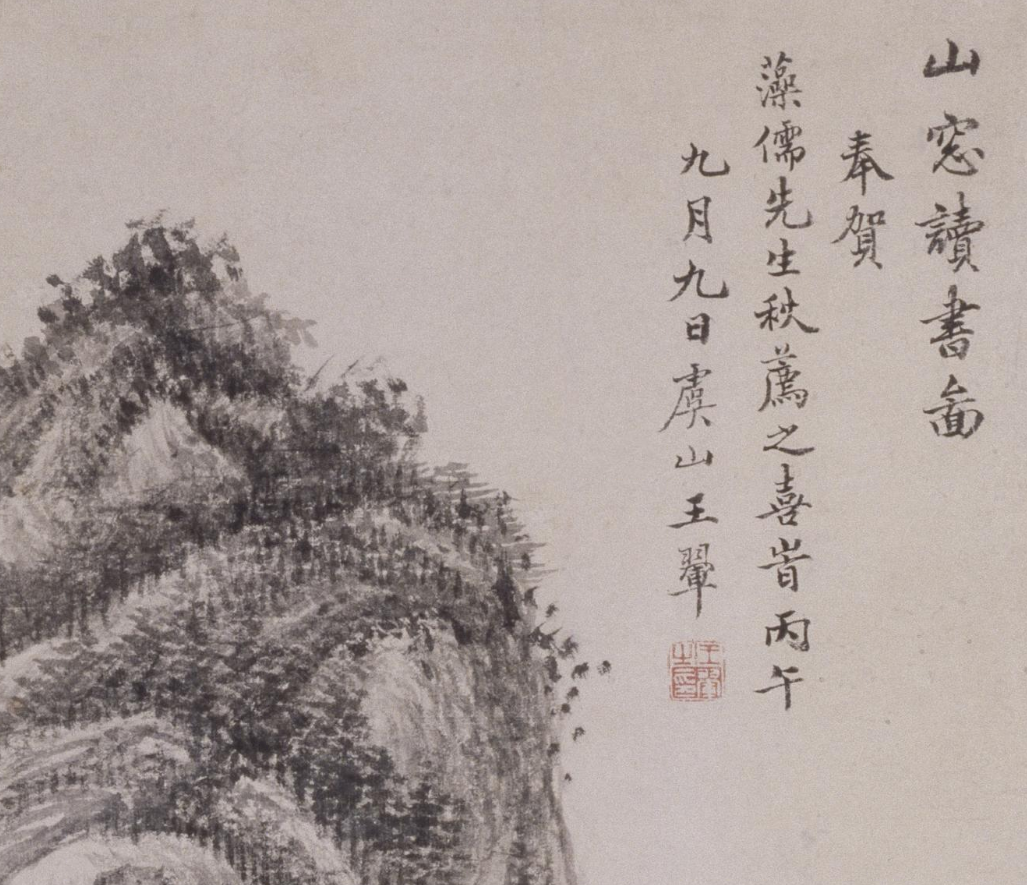 山窓讀書圖
奉賀
藻儒先生秋薦之喜旹丙午
九月九日虞山王翬
王翬之印